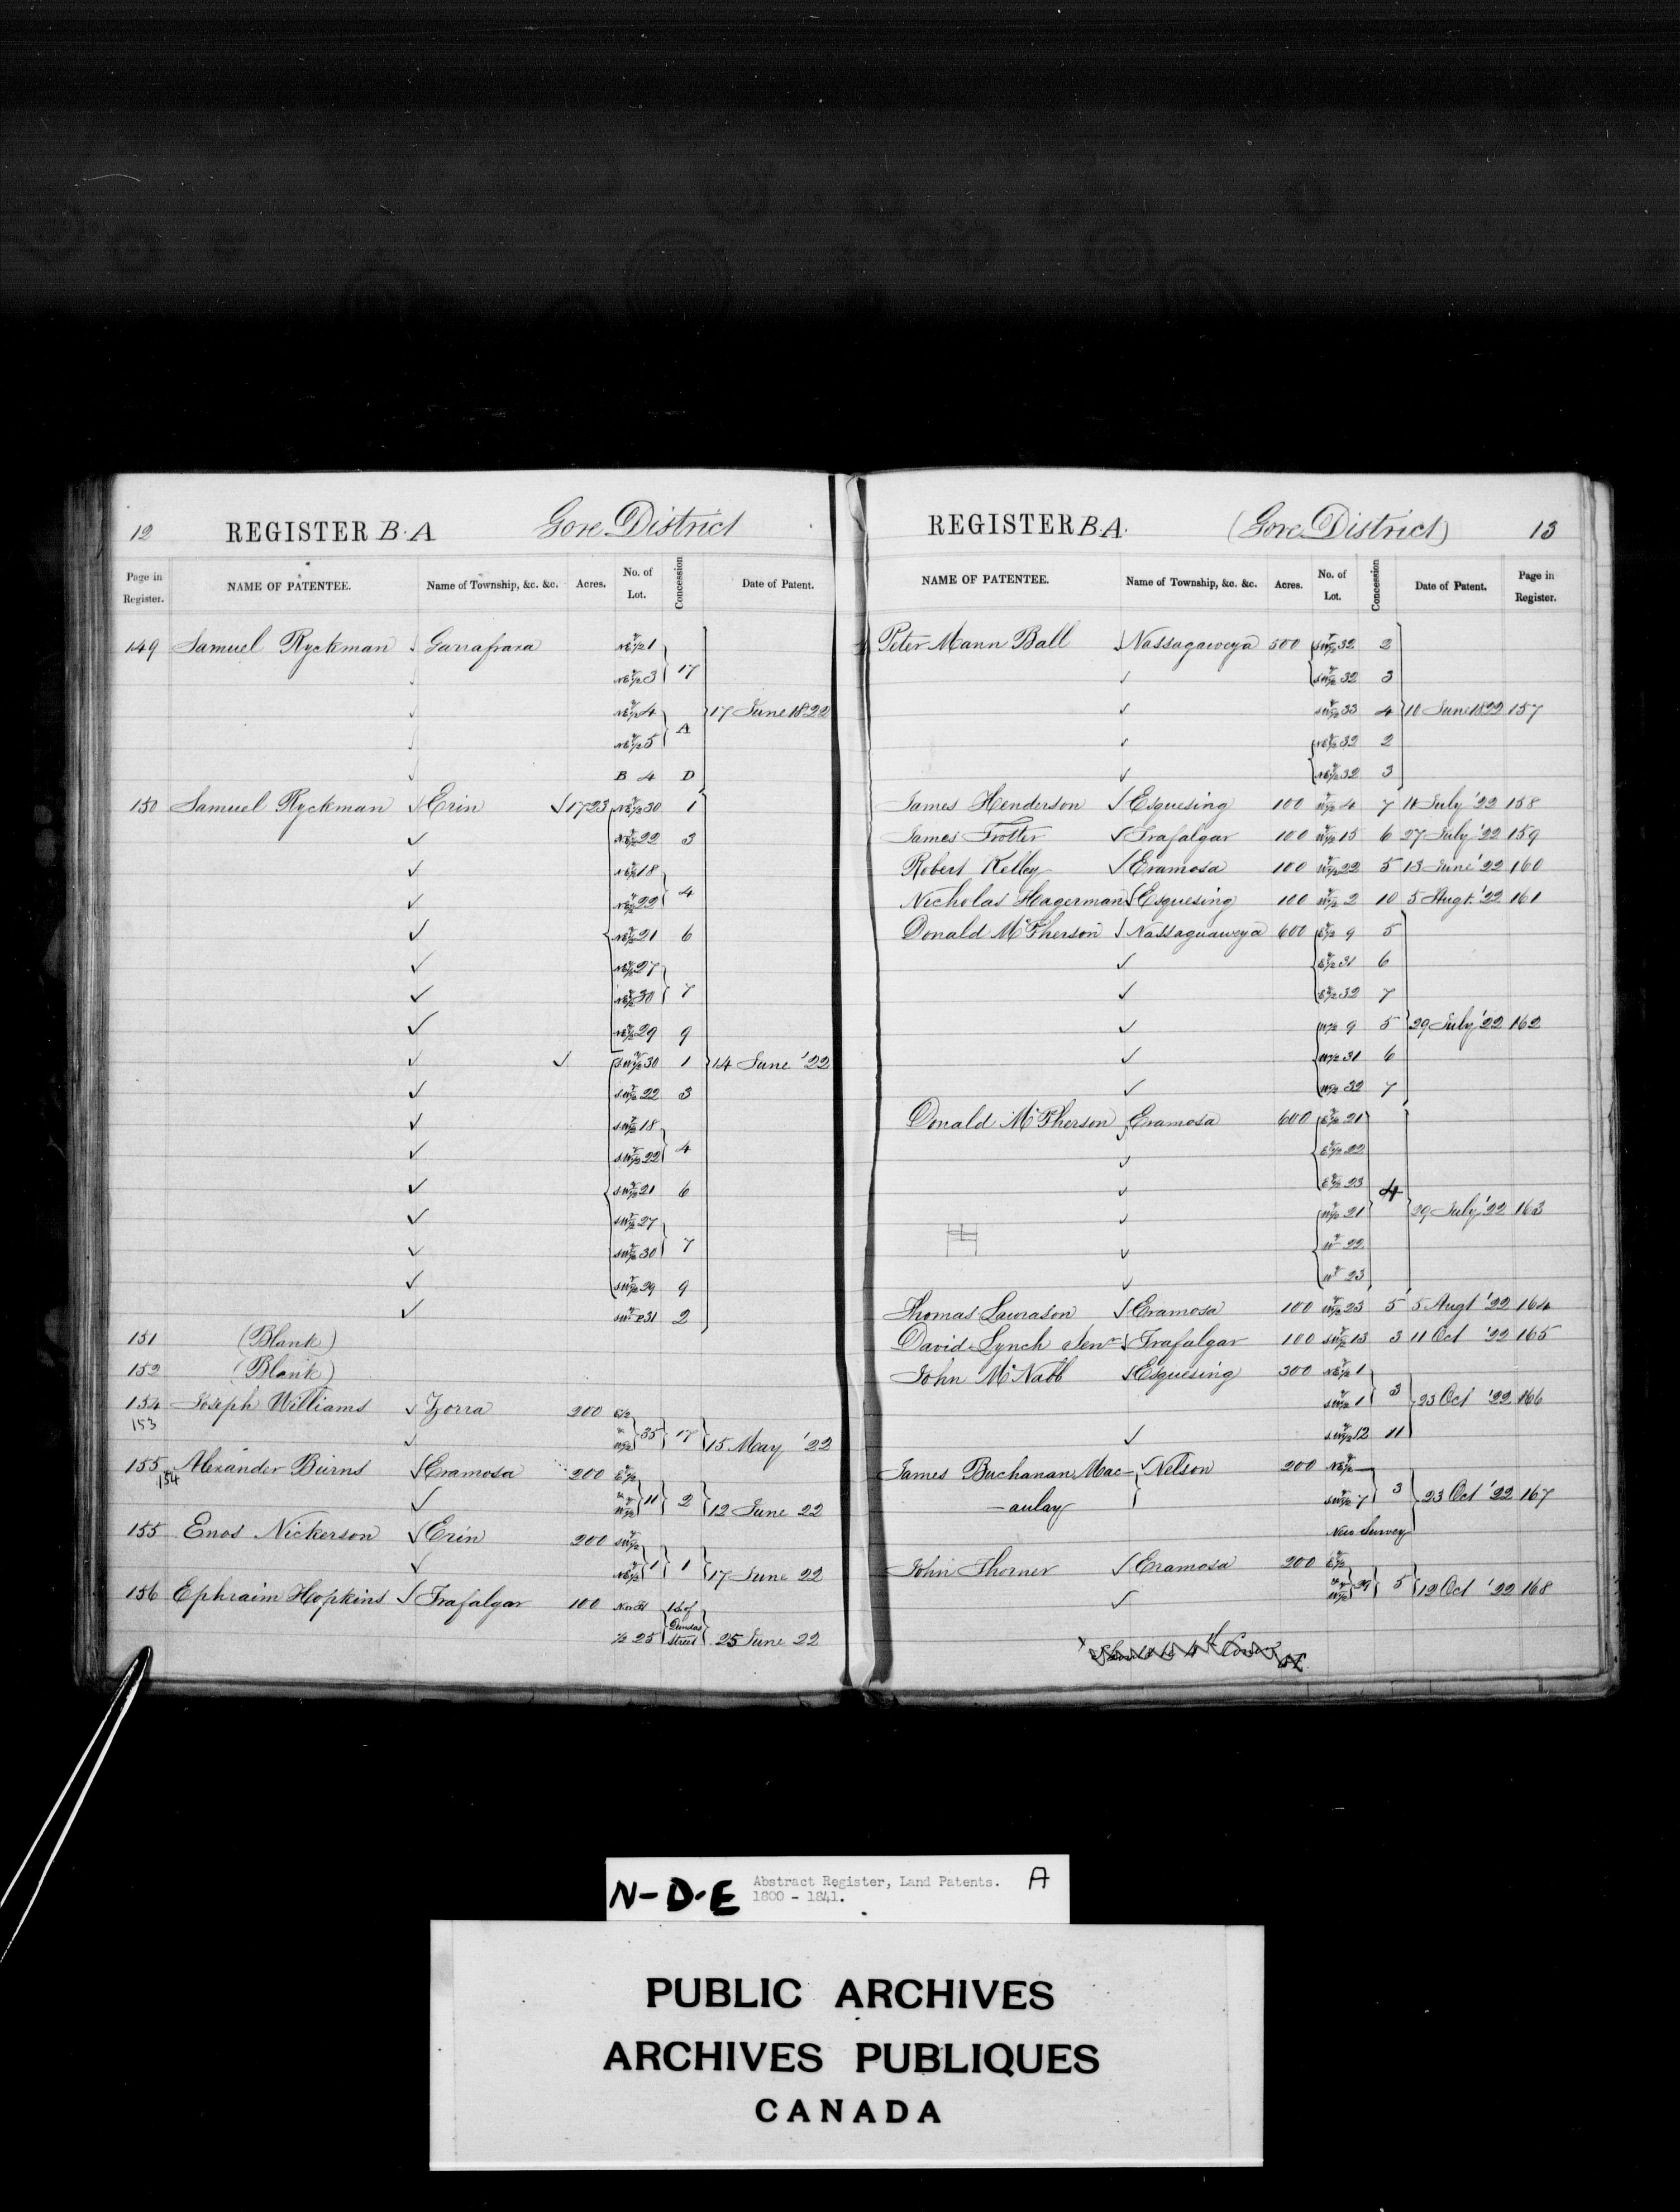 12 REGISTER B. A Gore District
Page in Register. NAME OF PATENTEE. Name of Township, &c. &c. Acres. No. of Lot. Concession Date of Patent.
149 Samuel Ryckman ✓ Garrafraxa NE pt ½ 1 } 17
✓ NE pt ½ 3
✓ NE pt ½ 4 } A } 17 June 1822
✓ NE pt ½ 5
✓ B 4 D
150 Samuel Ryckman ✓ Erin ✓ 1723 NE pt ½ 30 1
✓ NE pt ½ 22 3
✓ NE pt ½ 18
✓ NE pt ½ 22 } 4
✓ NE pt ½ 21 6
✓ NE pt ½ 27
✓ NE pt ½ 30 } 7
✓ NE pt ½ 29 9
✓ ✓ S.W pt ½ 30 1 } 14 June '22
✓ S.W pt ½ 22 3
✓ S.W pt ½ 18
✓ S.W pt ½ 22 } 4
✓ S.W pt ½ 21 6
✓ S.W pt ½ 27
✓ S.W pt ½ 30 } 7
✓ S.W pt ½ 29 9
✓ 31 2
151 (Blank)
152 (Blank)
154 Joseph Williams ✓ Zorra 200 E ½
153 ✓ & W ½ } 35 } 17 } 15 May '22
155 Alexander Burns ✓ Eramosa 200 E pt ½
154 ✓ & W pt ½ } 11 } 2 } 12 June 22
155 Enos Nickerson ✓ Erin 200 SW pt ½
✓ NE pt ½ } 1 } 1 } 17 June 22
156 Ephraim Hopkins ✓ Trafalgar 100 North 1 S. of
½ 25 Dundas Street } 25 June 22
REGISTER B A. (Gore District) 13
NAME OF PATENTEE. Name of Township, &c. &c. Acres. No. of Lot. Concession Date of Patent. Page in Register.
Peter Mann Ball ✓ Nassagaweya 500 SW pt ½ 32 2
✓ SW pt ½ 32 3
✓ SW pt ½ 33 4 } 10 June 1822 157
✓ NE pt ½ 32 2
✓ NE pt ½ 32 3
James Henderson ✓ Esquesing 100 W pt ½ 4 7 11 July '22 158
James Trotter ✓ Trafalgar 100 W pt ½ 15 6 27 July '22 159
Robert Kelley ✓ Eramosa 100 W pt ½ 22 5 13 June '22 160
Nicholas Hagerman ✓ Esquesing 100 W pt ½ 2 10 5 Augt. '22 161
Donald McPherson ✓ Nassaguaweya 600 E pt ½ 9 5
✓ E pt ½ 31 6
✓ E pt ½ 32 7
✓ W ½ 9 5 } 29 July '22 162
✓ W ½ 31 6
✓ W pt ½ 32 7
Donald McPherson ✓ Eramosa 600 E pt ½ 21
✓ E pt ½ 22
✓ E pt ½ 23 4
✓ W pt ½ 21 } 29 July '22 163
✓ W pt 22
✓ W pt 23
Thomas Lawrason ✓ Eramosa 100 W pt ½ 23 5 5 Augt '22 164
David Lynch Senr ✓ Trafalgar 100 SW pt ½ 13 3 11 Oct '22 165
John McNabb ✓ Esquesing 300 NE pt ½ 1
SW pt ½ 1 } 3 } 23 Oct '22 166
✓ SW pt ½ 12 11
James Buchanan Mac- ✓ Nelson 200 NE pt ½
-aulay SW pt ½ 7 } 3 } 23 Oct '22 167
New Survey
John Thorner ✓ Eramosa 200 E pt ½
✓ & W pt ½ } 29 } 5 } 12 Oct '22 168
N-D-E Abstract Register, Land Patents. A
1800 - 1841.
PUBLIC ARCHIVES
ARCHIVES PUBLIQUES
CANADA